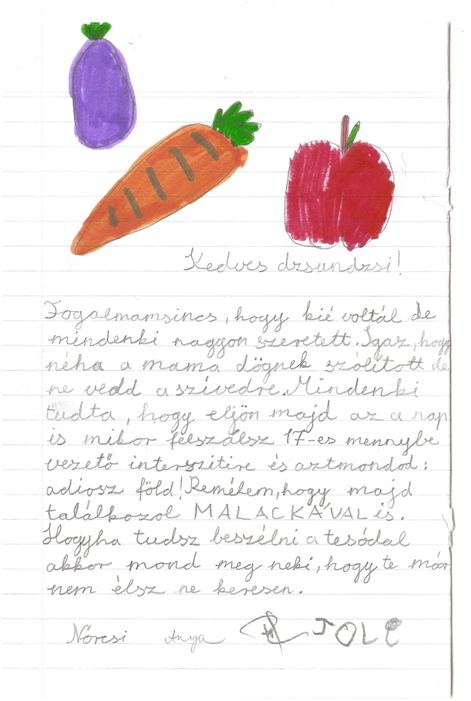 Kedves dzsundzsi!
Fogalmamsincs, hogy kié voltál de
mindenki nagyon szeretett. Igaz, hogy
néha a mama dögnek szólított de
ne vedd a szívedre. Mindenki
tudta, hogy eljön majd az a nap
is mikor felszálsz 17-es mennybe
vezető interszitire és aztmondod:
adiosz föld! Remélem, hogy majd
találkozol MALACKÁVAL is.
Hogyha tudsz beszélni a tesódal
akkor mond meg neki, hogy te már
nem élsz ne keresen.
Norcsi Anya JOLE